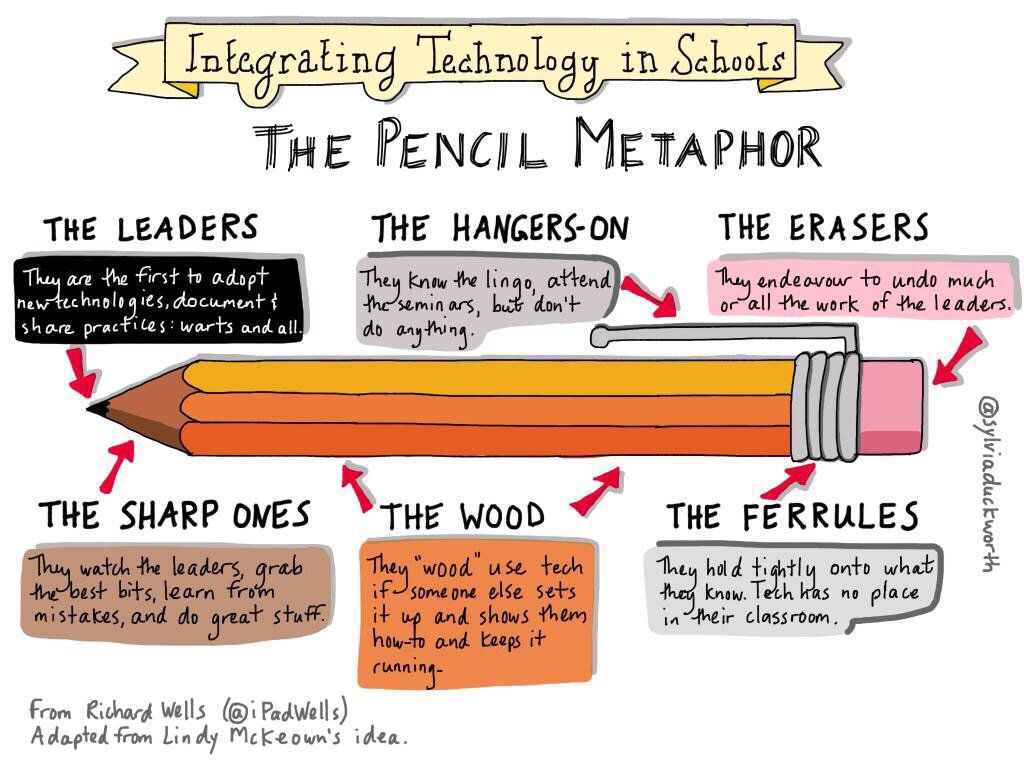 Integrating Technology in Schools
THE PENCIL METAPHOR
THE LEADERS
They are the first to adopt
new technologies, document &
share practices: warts and all.
THE HANGERS-ON
They know the lingo, attend
the seminars, but don't
do anything.
THE ERASERS
They endeavour to undo much
or all the work of the leaders.
THE SHARP ONES
They watch the leaders, grab
the best bits, learn from
mistakes, and do great stuff.
THE WOOD
They "wood" use tech
if someone else sets
it up and shows them
how-to and keeps it
running.
THE FERRULES
They hold tightly onto what
they know. Tech has no place
in their classroom.
@sylviaduckworth
From Richard Wells (@iPadWells)
Adapted from Lindy McKeown's idea.